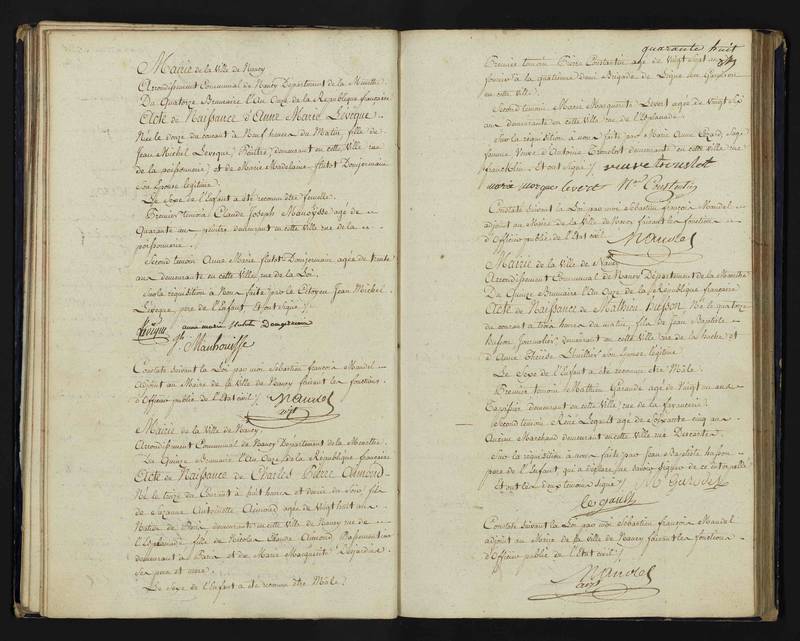 Mairie de la Ville de Nancy
Arrondissement Communal de Nancy Département de la Meurthe
Du Quatorze Brumaire l'An Onze de la République française
Acte de Naissance d'Anne Marie Levêque
Née le douze du courant à Neuf heures du Matin, fille de
Jean Michel Levêque, Peintre, demeurant en cette Ville rue
de la poissonnerie, et de Marie Madelaine flutot Domjermain
son épouse légitime.
Le Sexe de l'Enfant a été reconnu être femelle.
Premier témoin, Claude Joseph agé de
Quarante ans peintre demeurant en cette Ville rue de la
poissonnerie.
Second témoin Anne Marie flutot Domjermain agée de trente
ans demeurante en cette Ville rue de la Loi.
Sur la réquisition à Nous faite par le Citoyen Jean Michel
Levêque, pere de l'Enfant. Et ont Signé /.
Levêque anne marie flutot Domgermain
Constaté suivant la Loi par moi Sébastien françois Mandel
Adjoint au Maire de la Ville de Nancy faisant les fonctions
d'Officier public de l'Etat civil /.
Mandel
adjt
Mairie de la Ville de Nancy.
Arrondissement Communal de Nancy Département de la Meurthe
Du Quinze Brumaire l'An Onze de la République française
Acte de Naissance de Charles Pierre Aimond
Né le treize du Courant à huit heures et demie du Soir, fils
de Suzanne Antoinette Aimond agée de Vingt huit ans
Native de Paris demeurante en cette Ville de Nancy rue de
l'Esplanade, fille de Nicolas Claude Aimond
demeurant à Paris et de Marie Marguerite Desjardins
ses pere et mere.
Le Sexe de l'Enfant a été reconnu être Mâle.
quarante huit
Premier témoin Pierre Constantin agé de Vingt sept ans
à la quatrième demi Brigade de Ligne en Garnison
en cette ville.
Second témoin Marie Marguerite Levert agée de Vingt six
ans demeurante en cette Ville rue de l'Esplanade.
Sur la réquisition à nous faite par Marie Anne Sage
femme Veuve d'Antoine demeurante en cette Ville rue
franklin. Et ont signé /. veuve
Constantin
Constaté suivant la Loi par moi Sébastien françois Mandel
adjoint au Maire de la Ville de Nancy faisant les fonctions
d'Officier public de l'Etat civil
Mandel
Mairie de la Ville de Nancy
Arrondissement Communal de Nancy Département de la Meurthe
Du Quinze Brumaire l'An Onze de la République française
Acte de Naissance de Mathieu Né le quatorze
du courant à trois heures du matin, fils de Jean Baptiste
Journalier, demeurant en cette Ville rue de la hache et
d'Anne Thérèse Lhuillier son épouse légitime.
Le Sexe de l'Enfant a été reconnu être Mâle.
Premier témoin Matthieu agé de Vingt un ans
Tapissier demeurant en cette Ville rue de la fayencerie.
Second témoin, René Legault agé de Soixante cinq ans
Ancien Marchand demeurant en cette Ville rue Descartes.
Sur la réquisition à nous faite par Jean Baptiste
pere de l'Enfant, qui a déclaré ne savoir signer de ce interpellé
Et ont les deux témoins signé /.
legault
Constaté suivant la Loi par moi Sébastien françois Mandel
adjoint au Maire de la Ville de Nancy faisant les fonctions
d'Officier public de l'Etat civil /.
Mandel
adjt